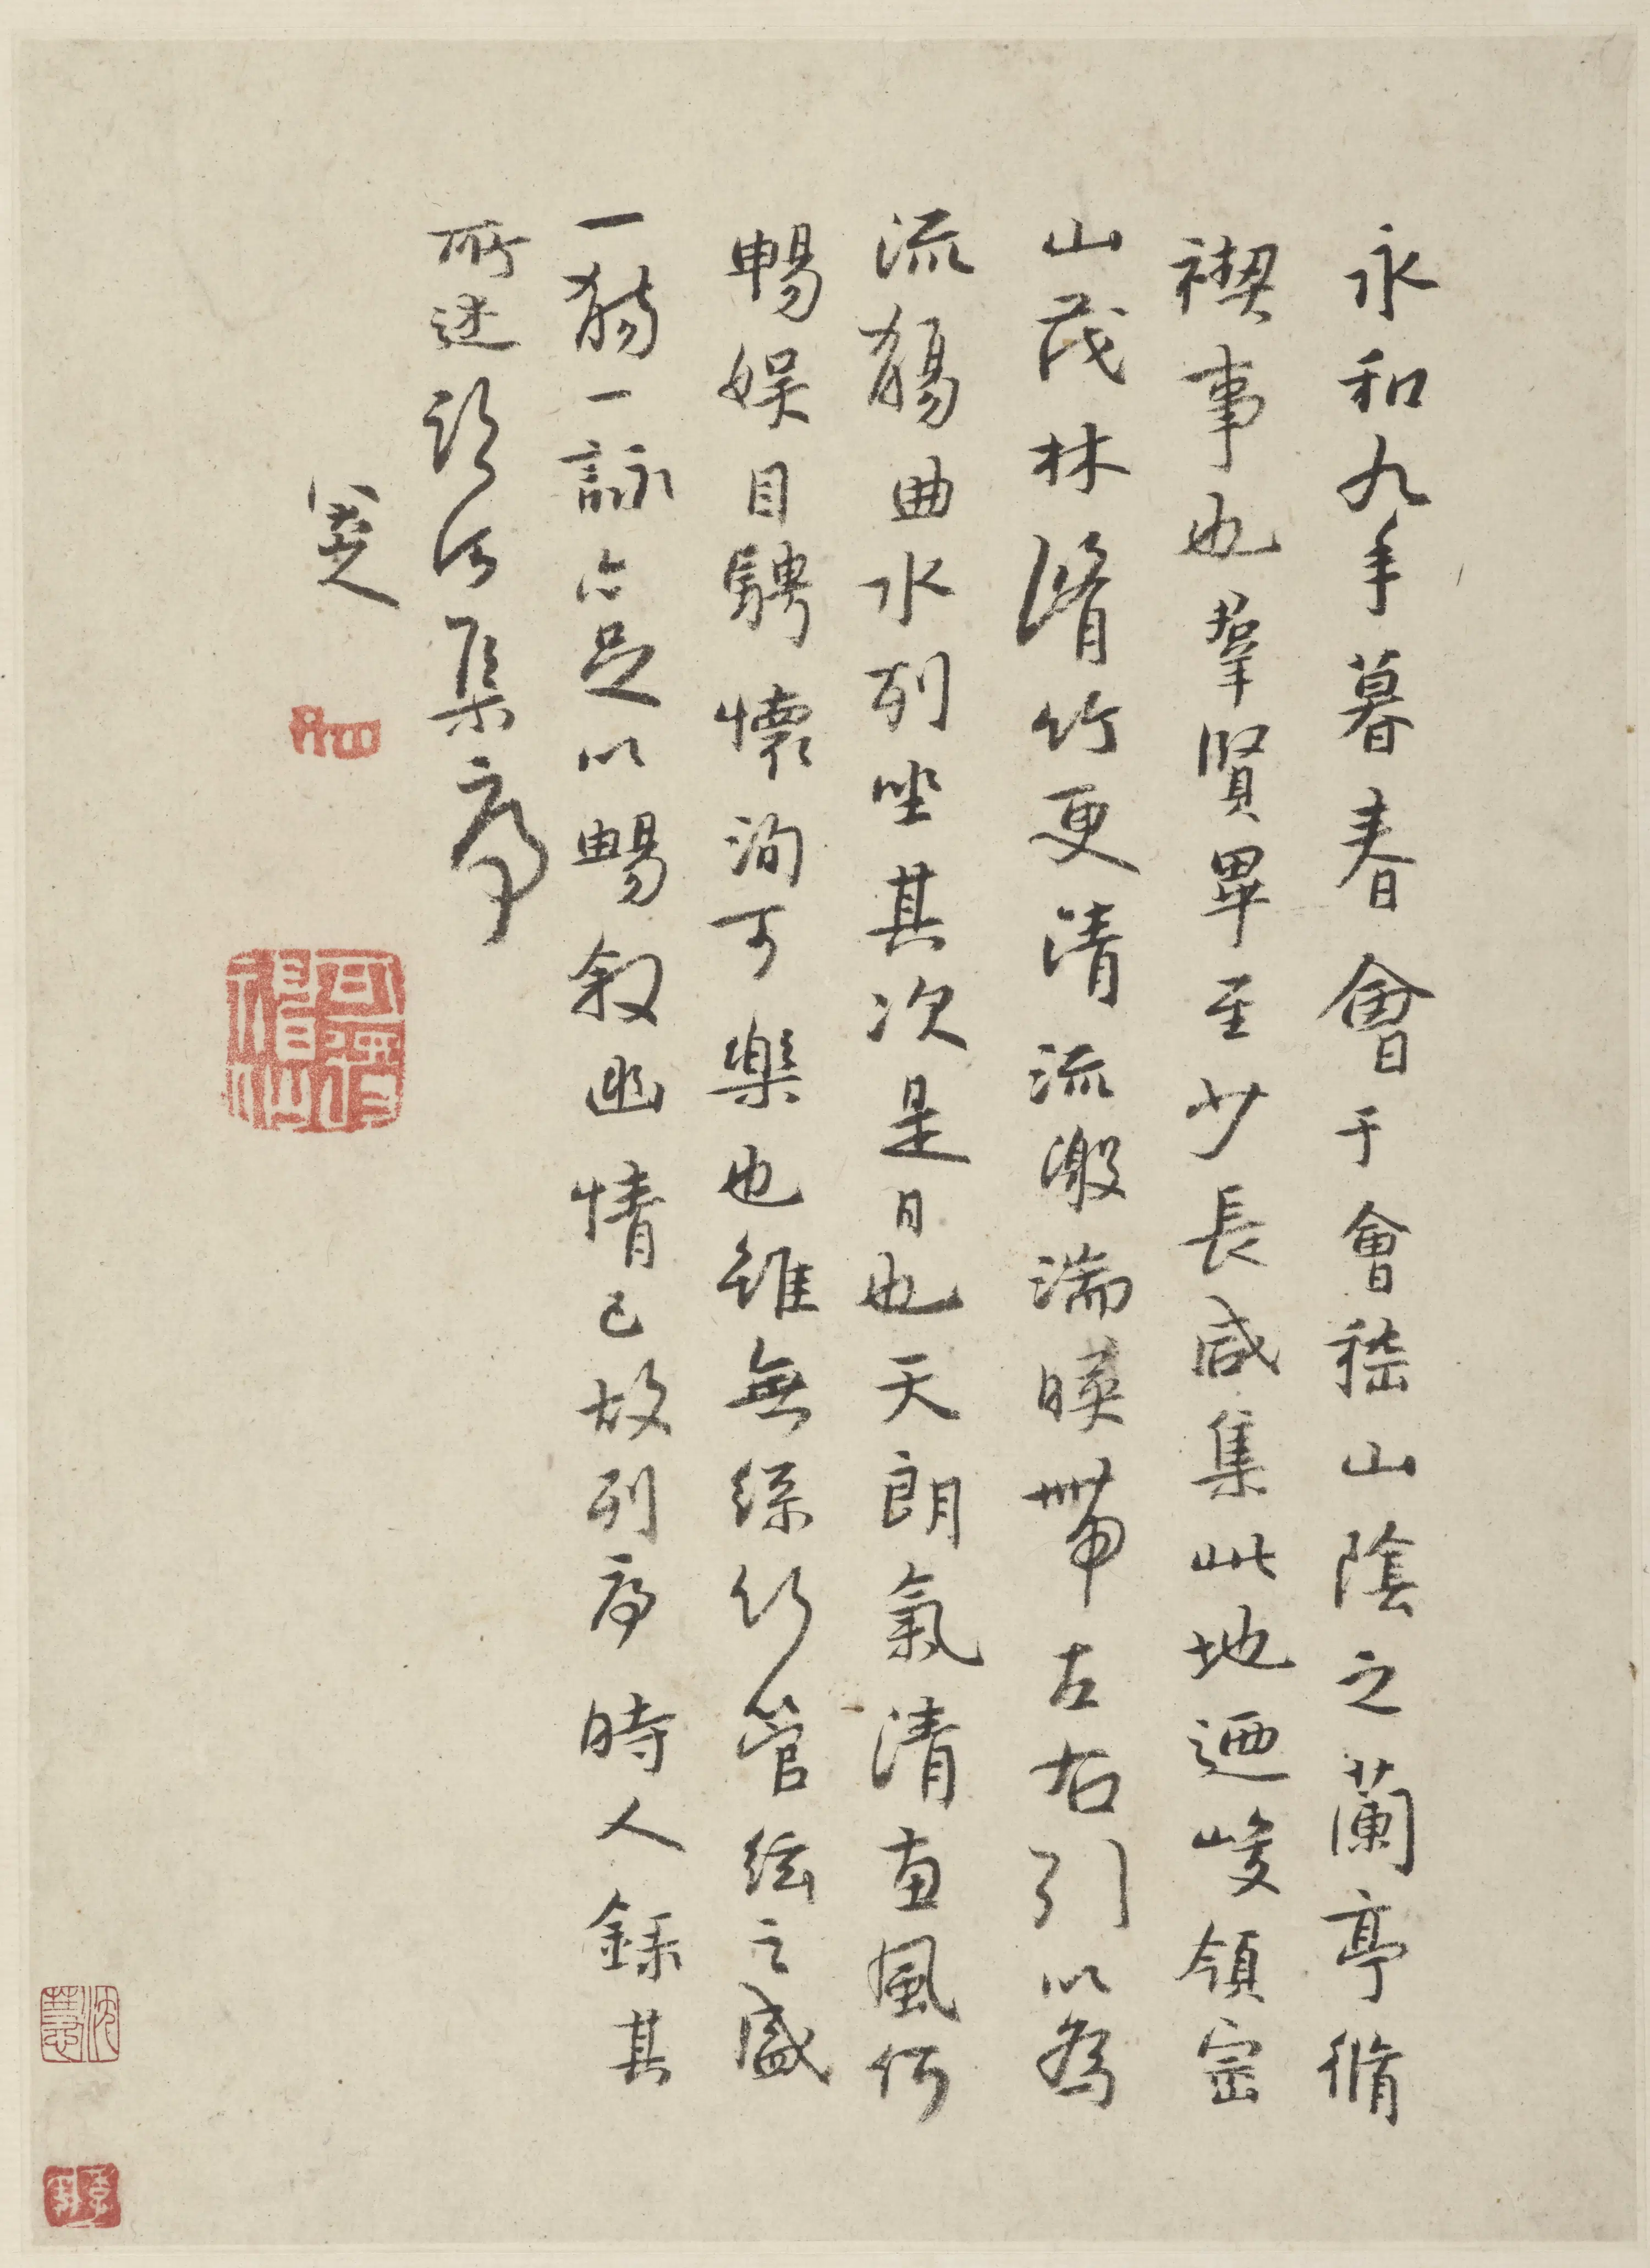 永和九年暮春會于會嵇山陰之蘭亭脩
禊事也羣賢畢至少長咸集此地迺峻領崇
山茂林脩竹更清流激湍暎帶左右引以為
流觴曲水列坐其次是日也天朗氣清惠風和
暢娛目騁懷洵可樂也雖無絲竹管絃之盛
一觴一詠亦足以暢敘幽情已故列序時人錄其
所述臨河集序
八大山人
可得神仙
沈慧